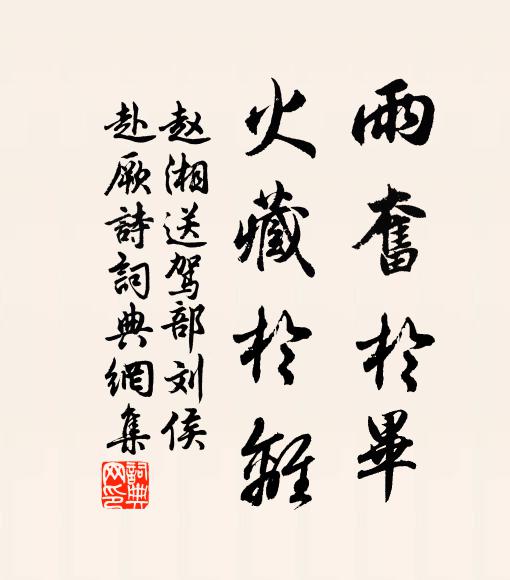 雨奮於畢
火藏於離
赵湘送驾部刘侯
赴厥詩詞典網集
詞典网印